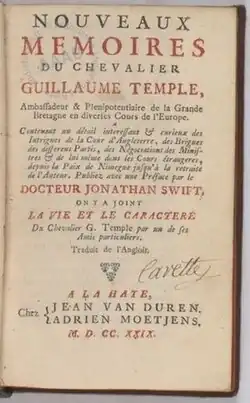 NOUVEAUX
MEMOIRES
DU CHEVALIER
GUILLAUME TEMPLE,
Ambassadeur & Plenipotentiaire de la Grande
Bretagne en diverses Cours de l'Europe.
Contenant un détail interessant & curieux des
Intrigues de la Cour d'Angleterre, des Brigues
des differens Partis, des Négociations des Minis-
tres & de lui même dans les Cours étrangeres,
depuis la Paix de Nimegue jusqu'à la retraite
de l'Auteur. Publiez avec une Préface par le
DOCTEUR JONATHAN SWIFT,
ON Y A JOINT
LA VIE ET LE CARACTERE
Du Chevalier G. Temple par un de ses
Amis particuliers.
Traduit de l'Anglois.
Cavette
A LA HAYE,
Chez { JEAN VAN DUREN.
ADRIEN MOETJENS.
M. D. CC. XXIX.